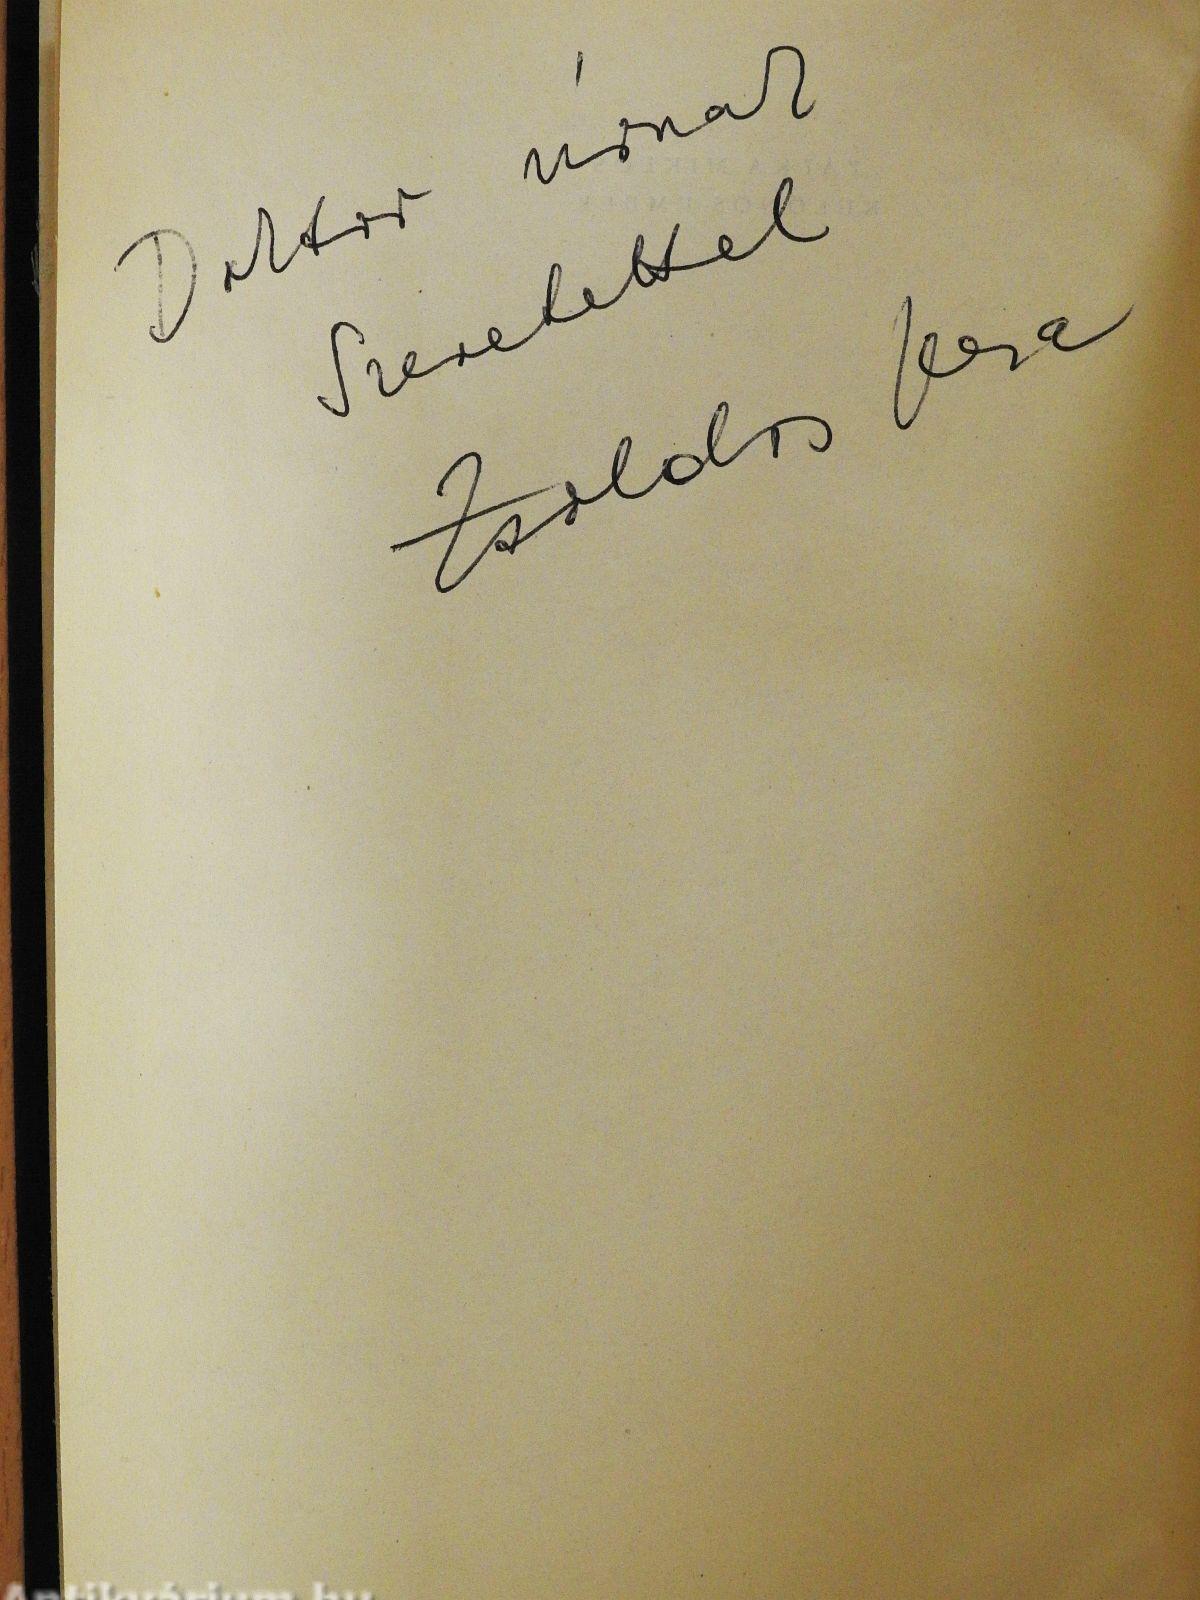 Doktor úrnak
Szeretettel
Zsoldos Vera
Antikvárium.hu